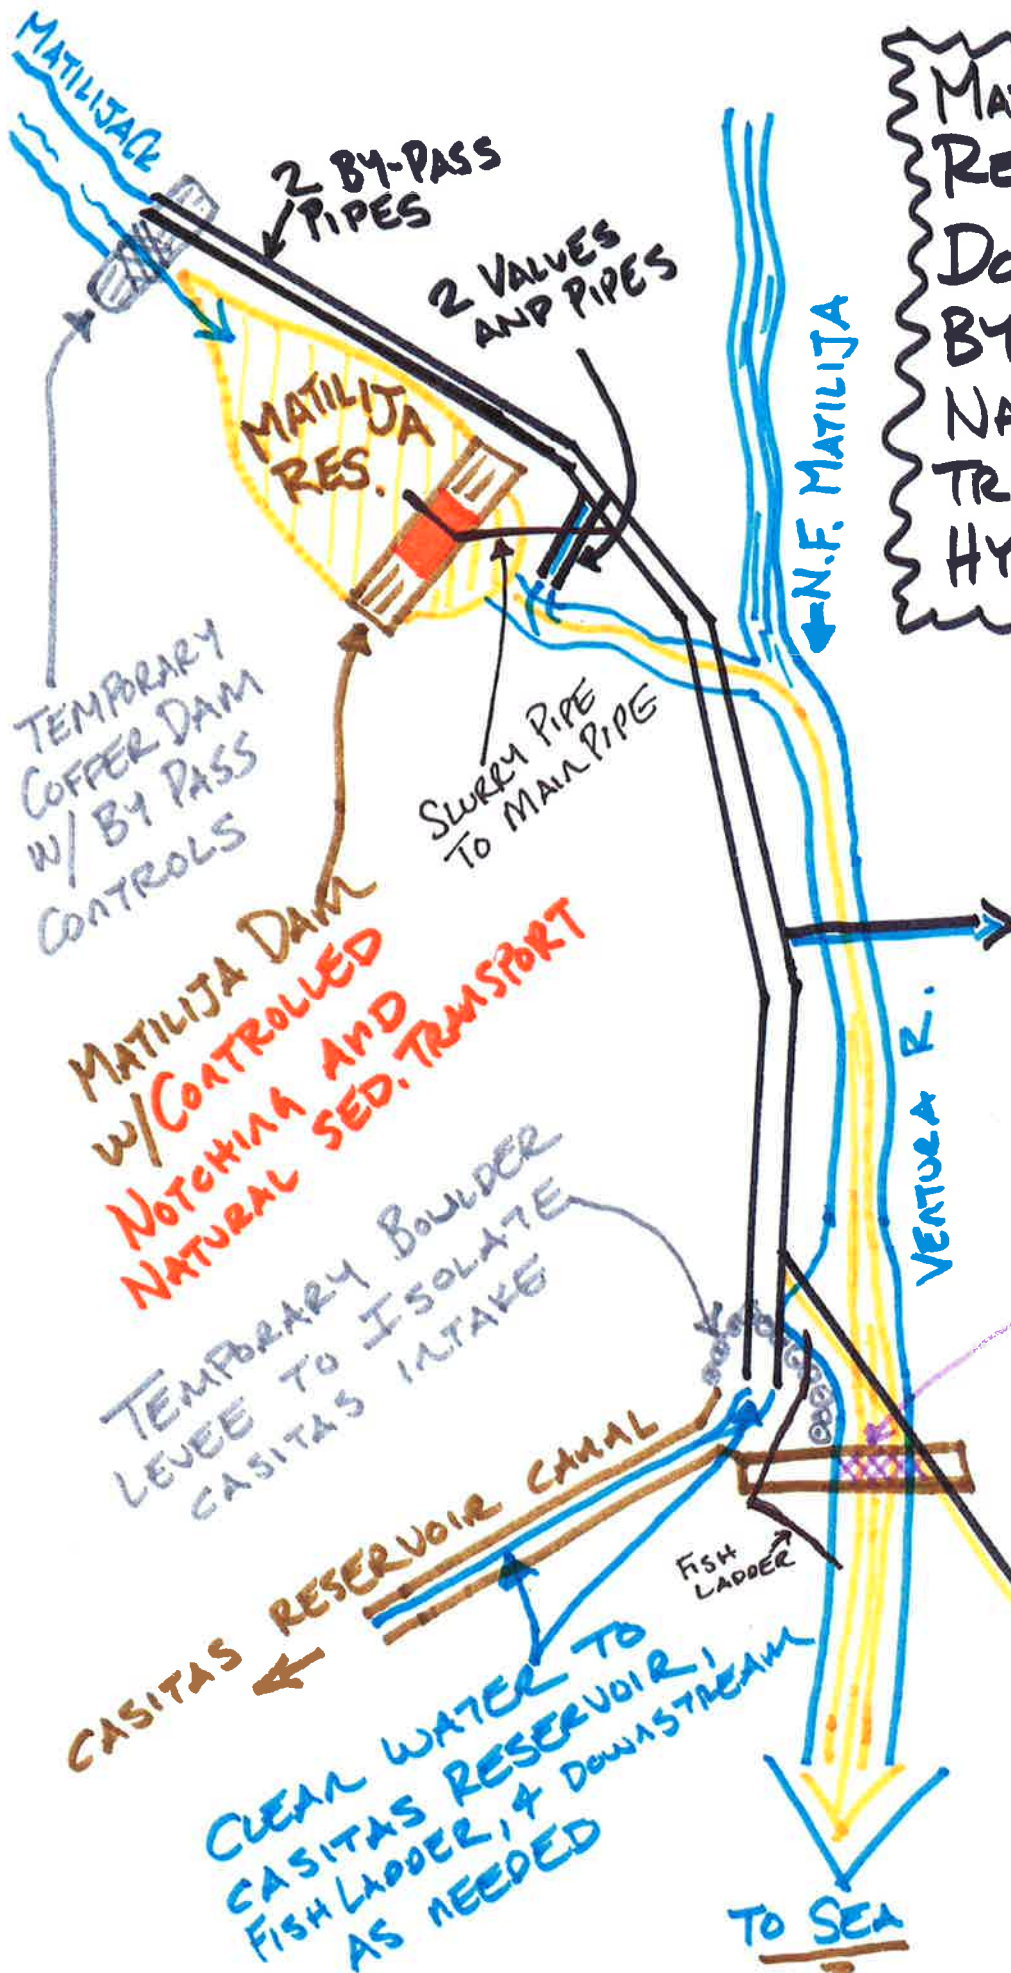 MATILIJA CK
2 BY-PASS
PIPES
2 VALVES
AND PIPES
MAT
RE
DO
BY
NA
TR
HY
N.F. MATILIJA
MATILIJA
RES.
TEMPORARY
COFFER DAM
W/ BY PASS
CONTROLS
SLURRY PIPE
TO MAIN PIPE
MATILIJA DAM
W/CONTROLLED
NOTCHING AND
NATURAL SED. TRANSPORT
VENTURA R.
TEMPORARY BOULDER
LEVEE TO ISOLATE
CASITAS INTAKE
CASITAS RESERVOIR CANAL
FISH
LADDER
CLEAN WATER TO
CASITAS RESERVOIR,
FISH LADDER, & DOWNSTREAM
AS NEEDED
TO SEA